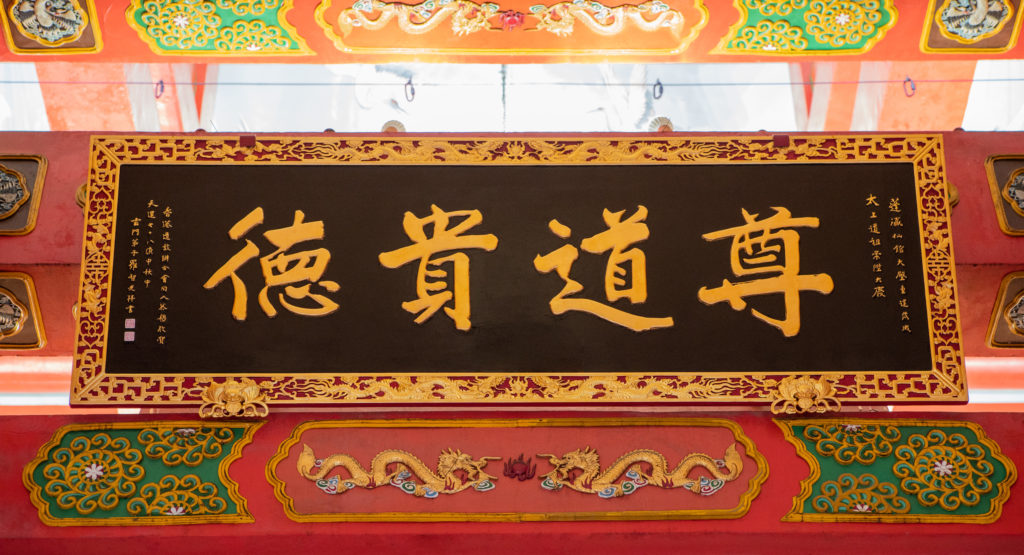 蓬瀛仙館大殿重建落成
太上道祖崇陞大
尊道貴德
香港道教聯合會同人恭敬賀
天運七十八庚申秋中
玄門弟子羅智光拜書